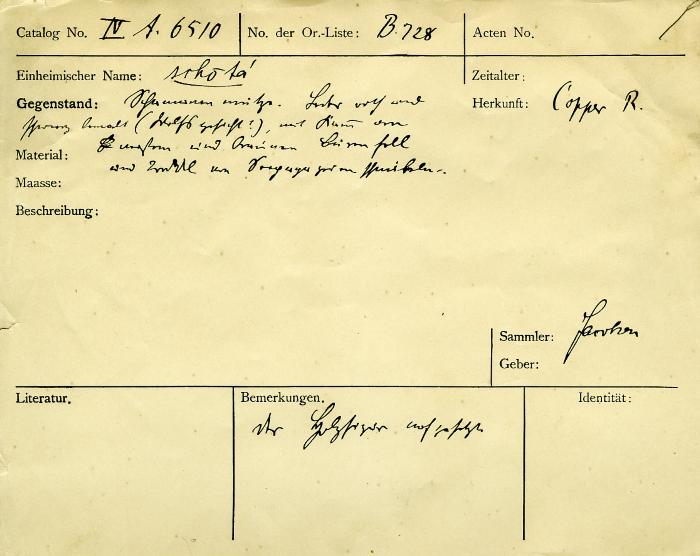 Catalog No. IV A. 6510 No. der Or.-Liste: B.728 Acten No.
Einheimischer Name: schotá Zeitalter:
Gegenstand: Schamanenmütze. Leder roth und Herkunft: Copper R.
schwarz bemalt (Wolfsgesicht?), mit Kamm von
Material: und braunem Bärenfell
Maasse: und von
Beschreibung:
Sammler: Jacobsen
Geber:
Literatur. Bemerkungen. Identität:
der Holzfigur aufgesetzt